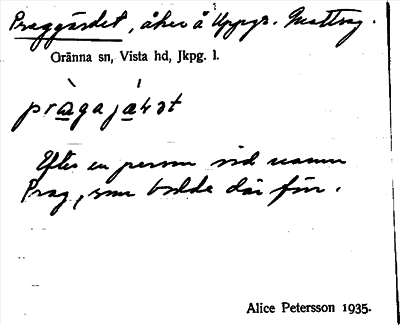 Praggärdet, åker å Uppgr. Mattsg.
Gränna sn, Vista hd, Jkpg. l.
pràgajáḷət
Efter en person vid namn
Prag, som bodde där förr.
Alice Petersson 1935.